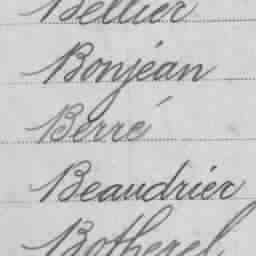 Bellier
Bonjéan
Berré
Beaudrier
Botherel